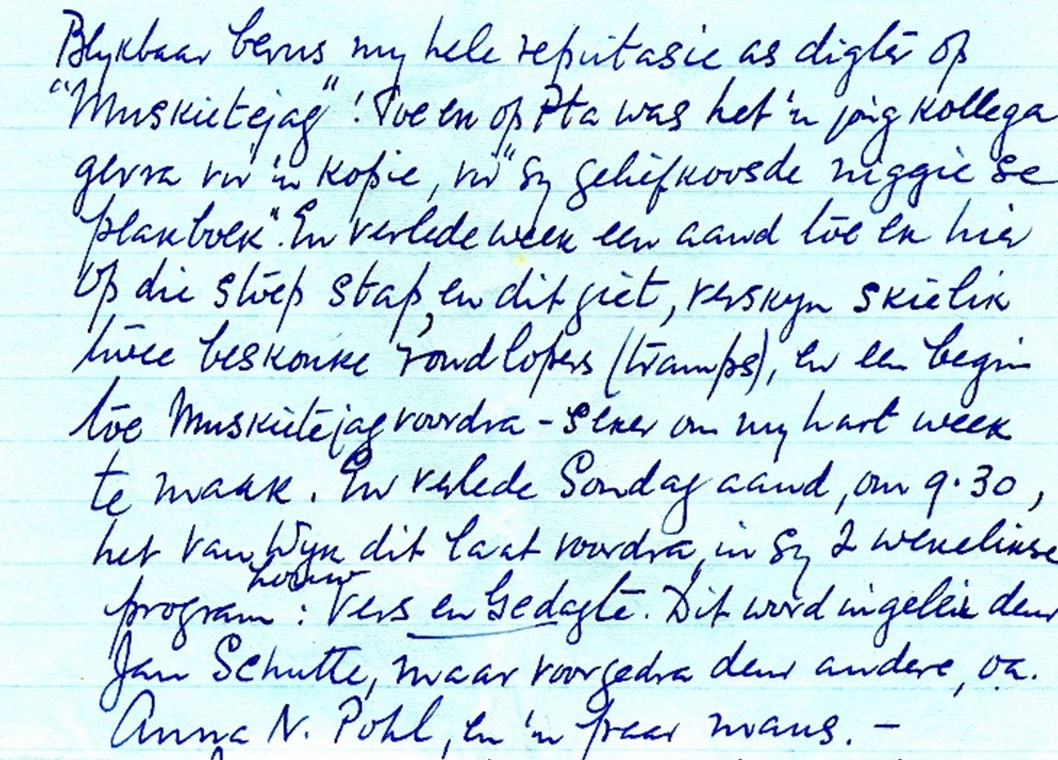 Blykbaar berus my hele reputasie as digter op
"Muskietejag"! Toe ek op Pta was het 'n jong kollega
gevra vir 'n kopie, vir "sy geliefkoosde niggie se
plakboek". En verlede week een aand toe ek hier
op die stoep stap, en dit giet, verskyn skielik
twee beskonke rondlopers (tramps), en een begin
toe Muskietejag voordra - seker om my hart week
te maak. En verlede Sondag aand, om 9.30,
het Van Wyk Louw dit laat voordra, in sy 2 wekelikse
program: Vers en Gedagte. Dit word ingelei deur
Jan Schutte, maar voorgedra deur andere, oa.
Anna N. Pohl, en 'n paar mans. -